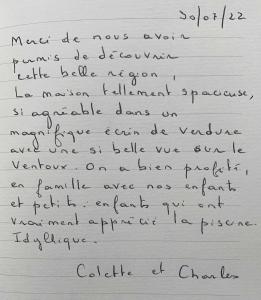 30/07/22
Merci de nous avoir
permis de découvrir
cette belle région,
La maison tellement spacieuse,
si agréable dans un
magnifique écrin de verdure
avec une si belle vue sur le
Ventoux. On a bien profité,
en famille avec nos enfants
et petits-enfants qui ont
vraiment apprécié la piscine.
Idyllique.
Colette et Charles